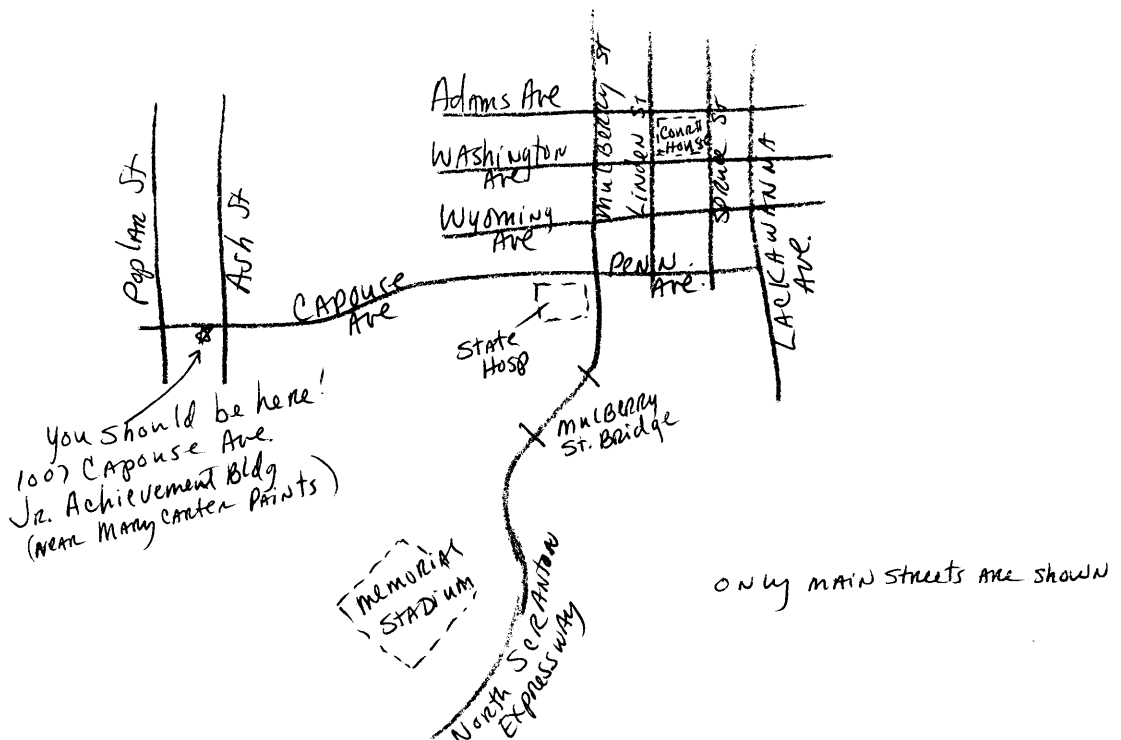 Adams Ave
Washington
Ave
Wyoming
Ave
Mulberry St
Linden St
Court
House
Spruce St
Lackawanna
Ave.
Penn.
Ave.
Poplar St
Ash St
Capouse
Ave
State
Hosp
You should be here!
1007 Capouse Ave.
Jr. Achievement Bldg
(near Mary Carter Paints)
Mulberry
St. Bridge
Memorial
Stadium
North Scranton
Expressway
Only main streets are shown